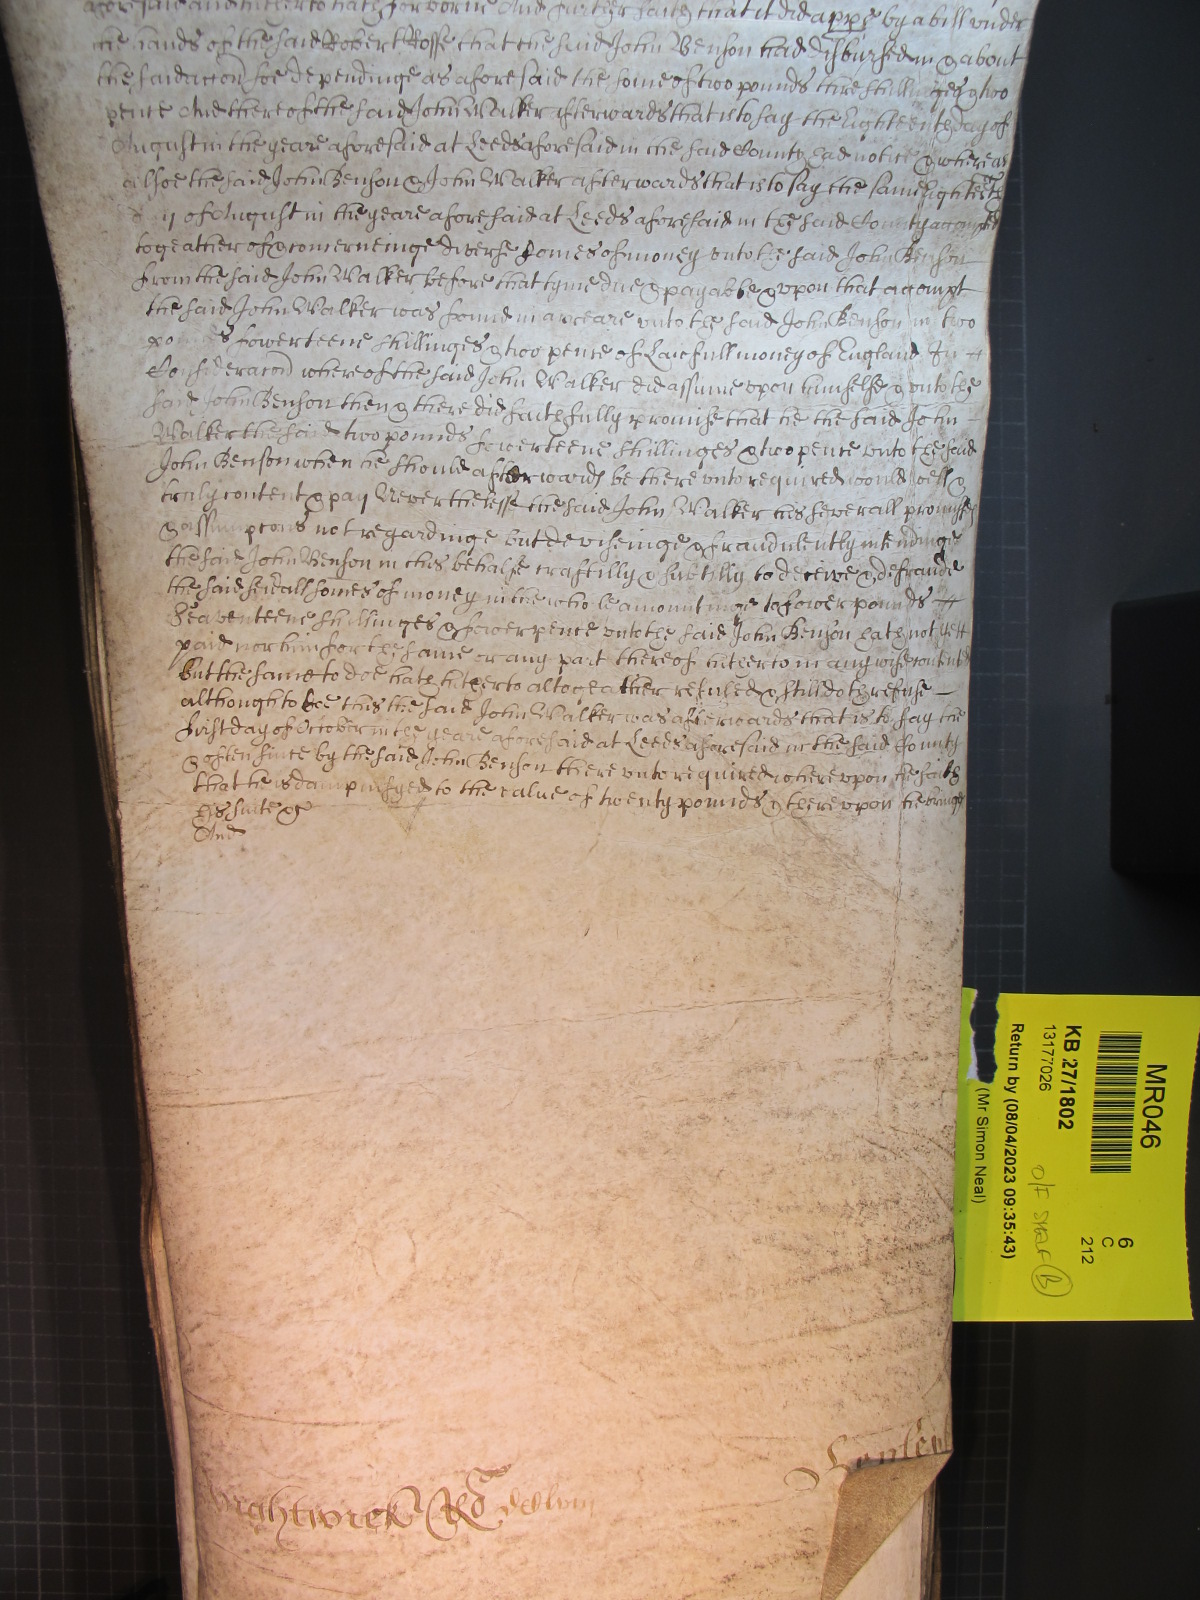 aforesaid and hitherto hath forborne And further saith that it did appe by a bill under
the hands of the said Robert Rosse that the said John Benson had disbursed in & about
the said accion soe dependinge as aforesaid the some of two pounds three shillinges & two
pence And thereof the said John Walker afterwards that is to say the Eighteenth day of
August in the yeare aforesaid at Leeds aforesaid in the said County had notice & whereas
allsoe the said John Benson & John Walker afterwards that is to say the same Eighteenth
day of August in the yeare aforesaid at Leeds aforesaid in the said County accompted
togeather of & concerneinge diverse somes of money unto the said John Benson
from the said John Walker before that tyme due & payable & upon that accompt
the said John Walker was found in arreare unto the said John Benson in two
pounds fowerteene shillinges & two pence of Lawfull money of England In
Consideracon whereof the said John Walker did assume upon himselfe & unto the
said John Benson then & there did faithfully promise that he the said John
Walker the said two pounds fowerteene shillinges & two pence unto the said
John Benson when he should afterwards be there unto required would well &
truly content & pay Neverthelesse the said John Walker his severall promises
& assumpcons not regardinge but deviseinge & fraudulently intendinge
the said John Benson in this behalfe craftilly & subtilly to deceive & defraude
the said sevrall somes of money in the whole amountinge to fower pounds
Seaventeene shillinges & fower pence unto the said John Benson hath not yett
paid nor him for the same or any part thereof hitherto in any wise contented
But the same to doe hath hitherto altogeather refused & still doth refuse
although to doe this the said John Walker was afterwards that is to say the
First day of October in the yeare aforesaid at Leeds aforesaid in the said County
& often since by the said John Benson there unto required whereupon he saith
that he is dampnifyed to the value of twenty pounds & thereupon he bringes
his suite &c
And
MR046
6
C
212
KB 27/1802
13177026
Return by (08/04/2023 09:35:43)
(Mr Simon Neal)
O/F SHELF B